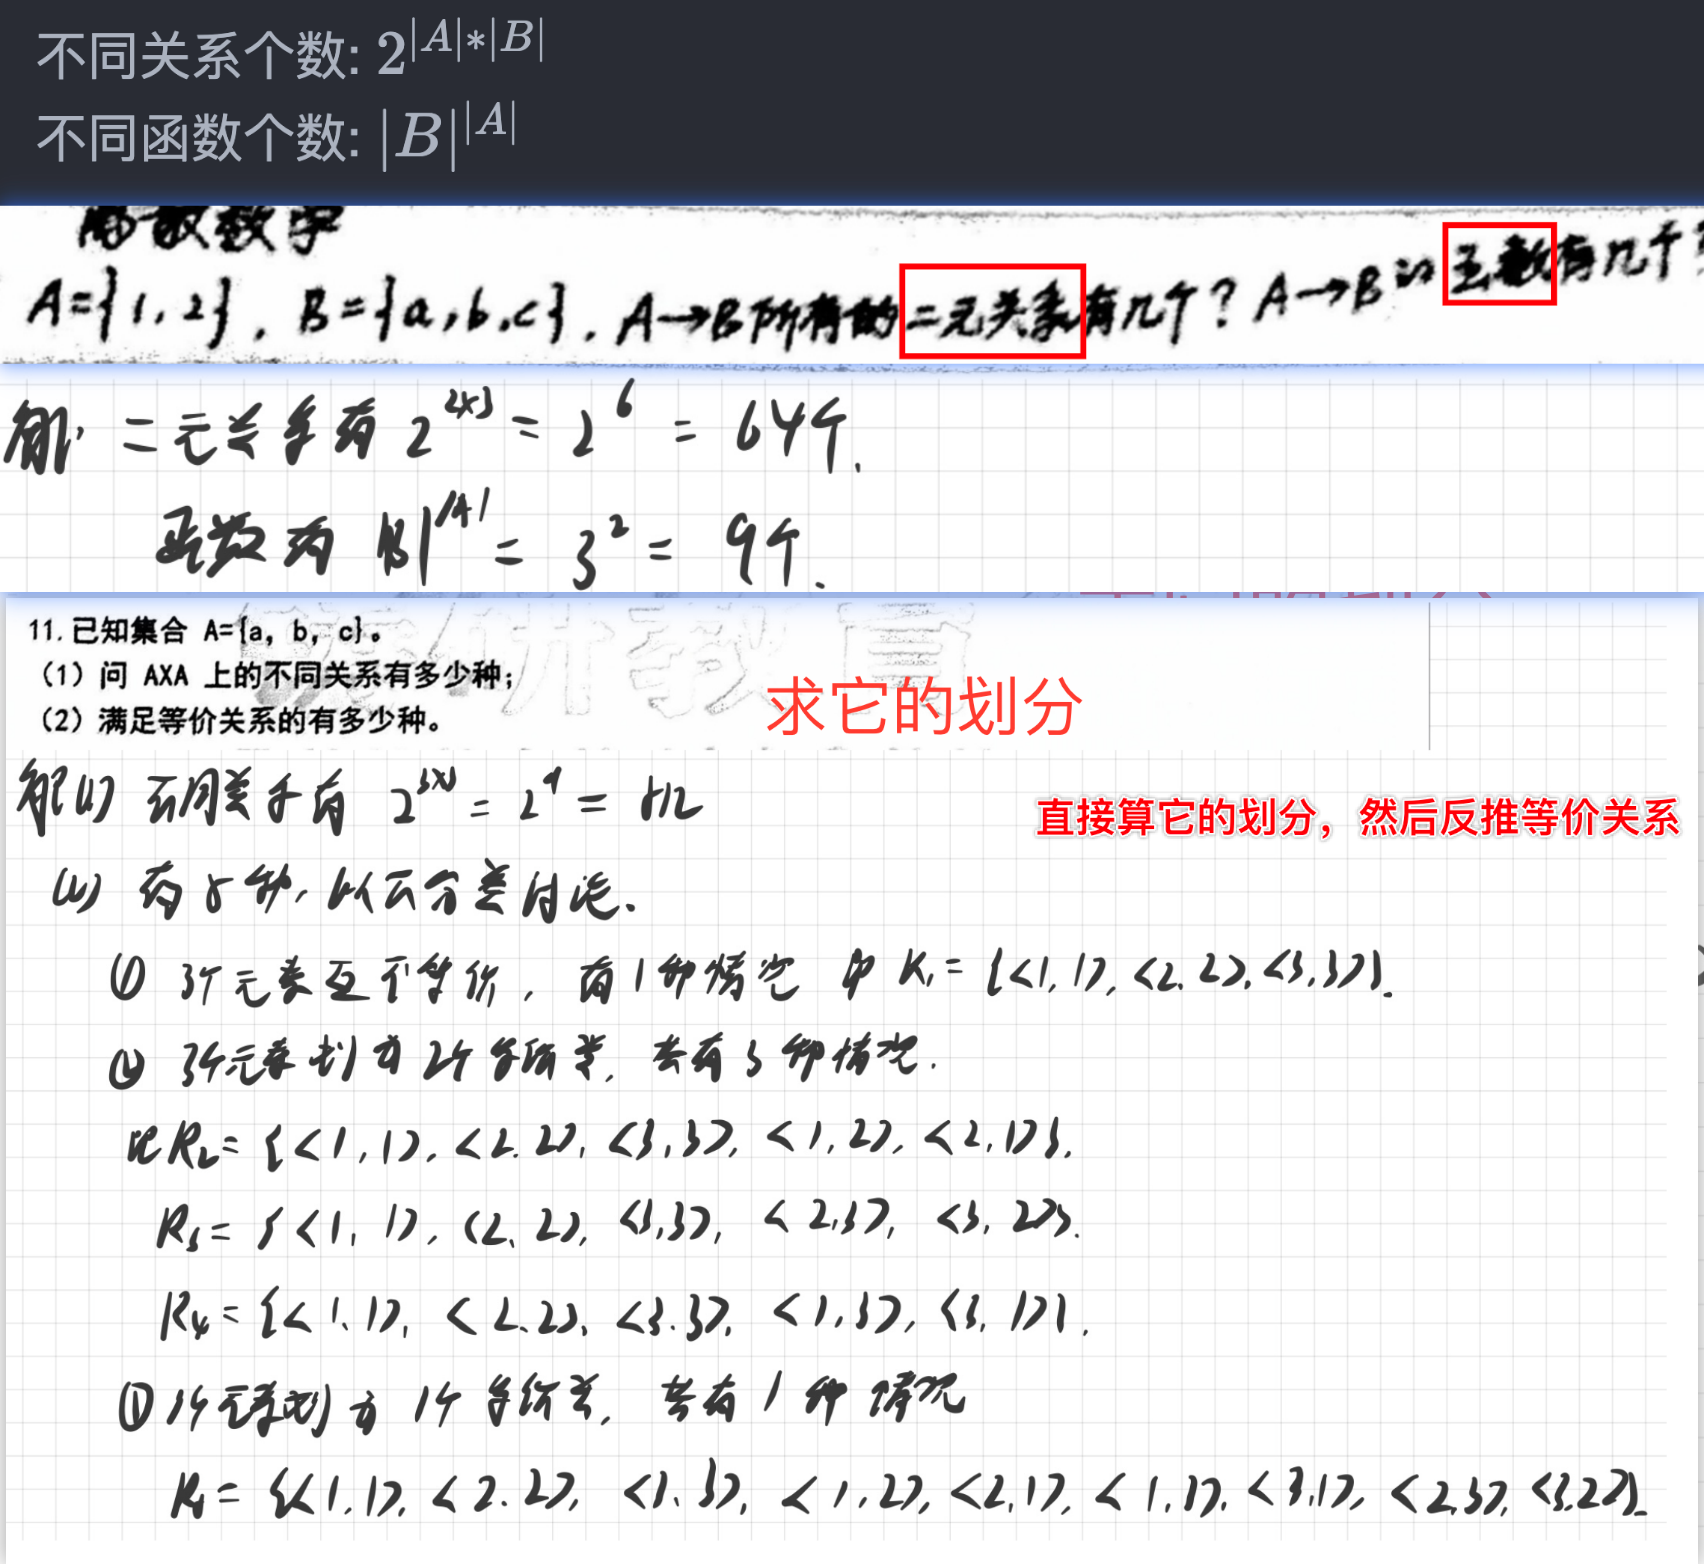 不同关系个数: 2^{|A|*|B|}
不同函数个数: |B|^{|A|}
离散数学
A={1,2}, B={a,b,c}. A→B所有的二元关系有几个? A→B的函数有几个?
解: 二元关系有 2^{2×3} = 2^6 = 64个.
函数有 |B|^{|A|} = 3^2 = 9个.
11.已知集合 A={a, b, c}。
(1) 问 AXA 上的不同关系有多少种;
(2) 满足等价关系的有多少种。
求它的划分
解(1) 不同关系有 2^{3×3} = 2^9 = 512
直接算它的划分，然后反推等价关系
(2) 有5种, 以下分类讨论.
① 3个元素互不等价, 有1种情况 即 R₁= {<1,1>, <2,2>, <3,3>}.
② 3个元素划为2个等价类, 共有3种情况.
记R₂= {<1,1>, <2,2>, <3,3>, <1,2>, <2,1>}.
R₃= {<1,1>, <2,2>, <3,3>, <2,3>, <3,2>}.
R₄= {<1,1>, <2,2>, <3,3>, <1,3>, <3,1>}.
③ 3个元素划为1个等价类, 共有1种情况
R₅= {<1,1>, <2,2>, <3,3>, <1,2>, <2,1>, <1,3>, <3,1>, <2,3>, <3,2>}.